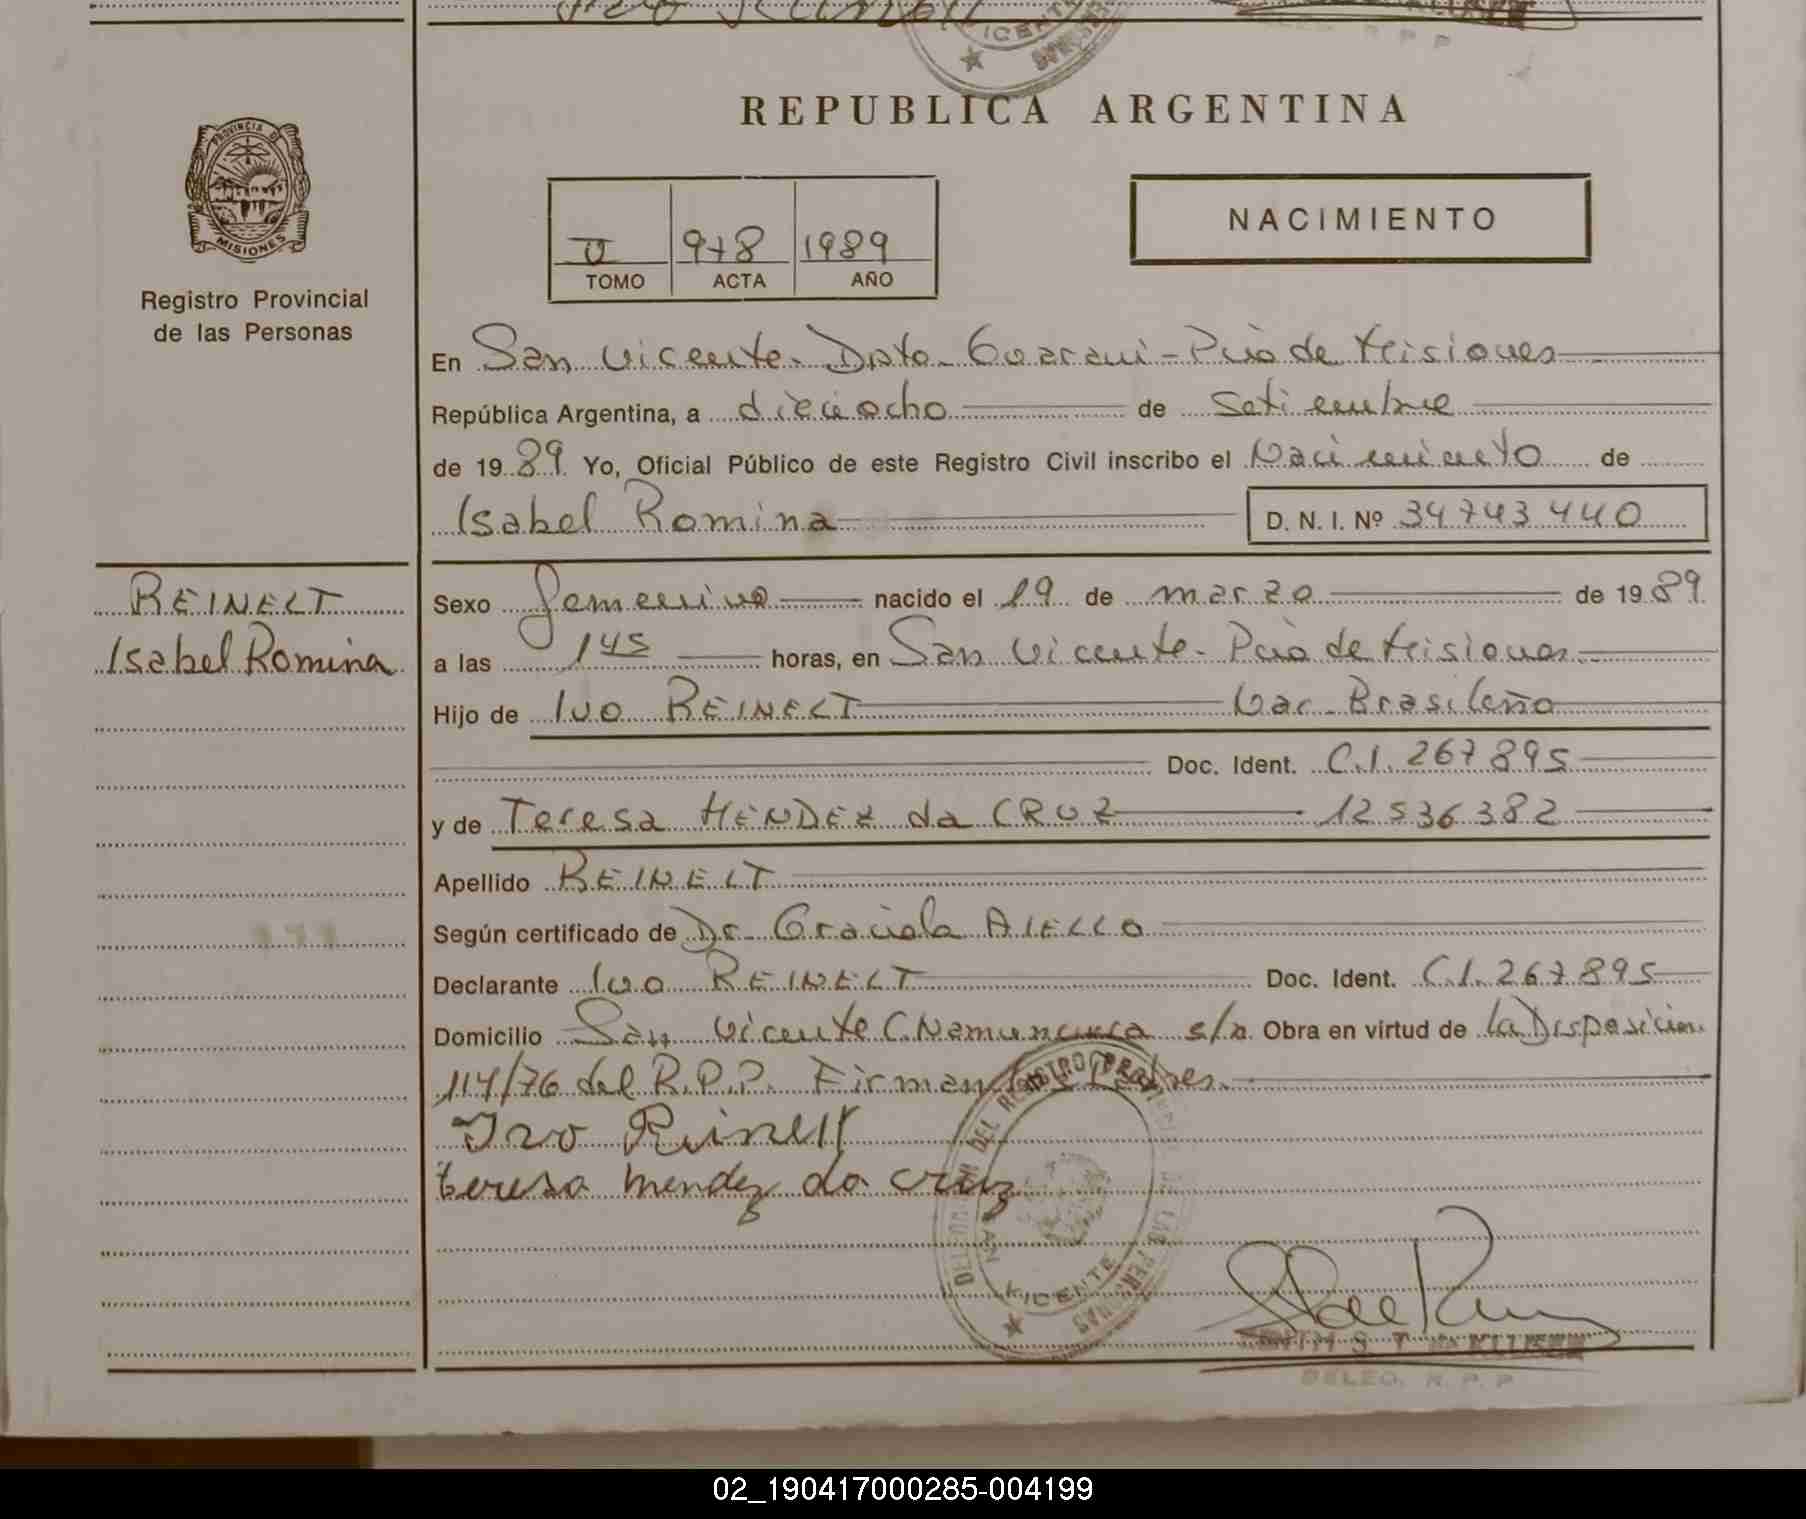 REPUBLICA ARGENTINA
PROVINCIA D
MISIONES
Registro Provincial
de las Personas
978 1989
TOMO ACTA AÑO
NACIMIENTO
En San Vicente - Dpto - Guarani - Pcia de Misiones
República Argentina, a dieciocho de Setiembre
de 1989 Yo, Oficial Público de este Registro Civil inscribo el Nacimiento de
Isabel Romina D. N. I. Nº 34743440
REINELT
Isabel Romina
Sexo femenino nacido el 19 de marzo de 1989
a las 1 45 horas, en San Vicente - Pcia de Misiones
Hijo de Ivo REINELT Nac - Brasileño
Doc. Ident. C.I. 267895
y de Teresa MENDEZ da CRUZ 12536382
Apellido REINELT
Según certificado de Dr Graciela AIELLO
Declarante Ivo REINELT Doc. Ident. C.I. 267895
Domicilio San Vicente C. Namuncura s/n Obra en virtud de la Disposicion
114/76 del R.P.P. Firman los Padres
Ivo Reinelt
teresa mendez da cruz
VICENTE
DELEG. R. P. P.
02_190417000285-004199